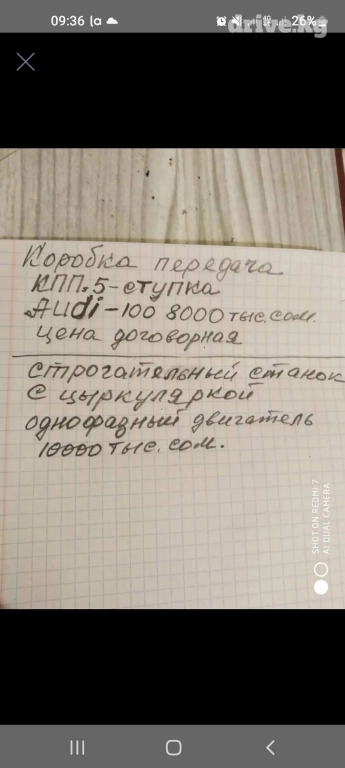 09:36 la
26%
drive.kg
Коробка передача
КПП.5-ступка
Audi-100 8000 тыс.сом.
цена договорная
строгательный станок
с цыркуляркой
однофазный двигатель
10000 тыс.сом.
SHOT ON REDMI 7
AI DUAL CAMERA